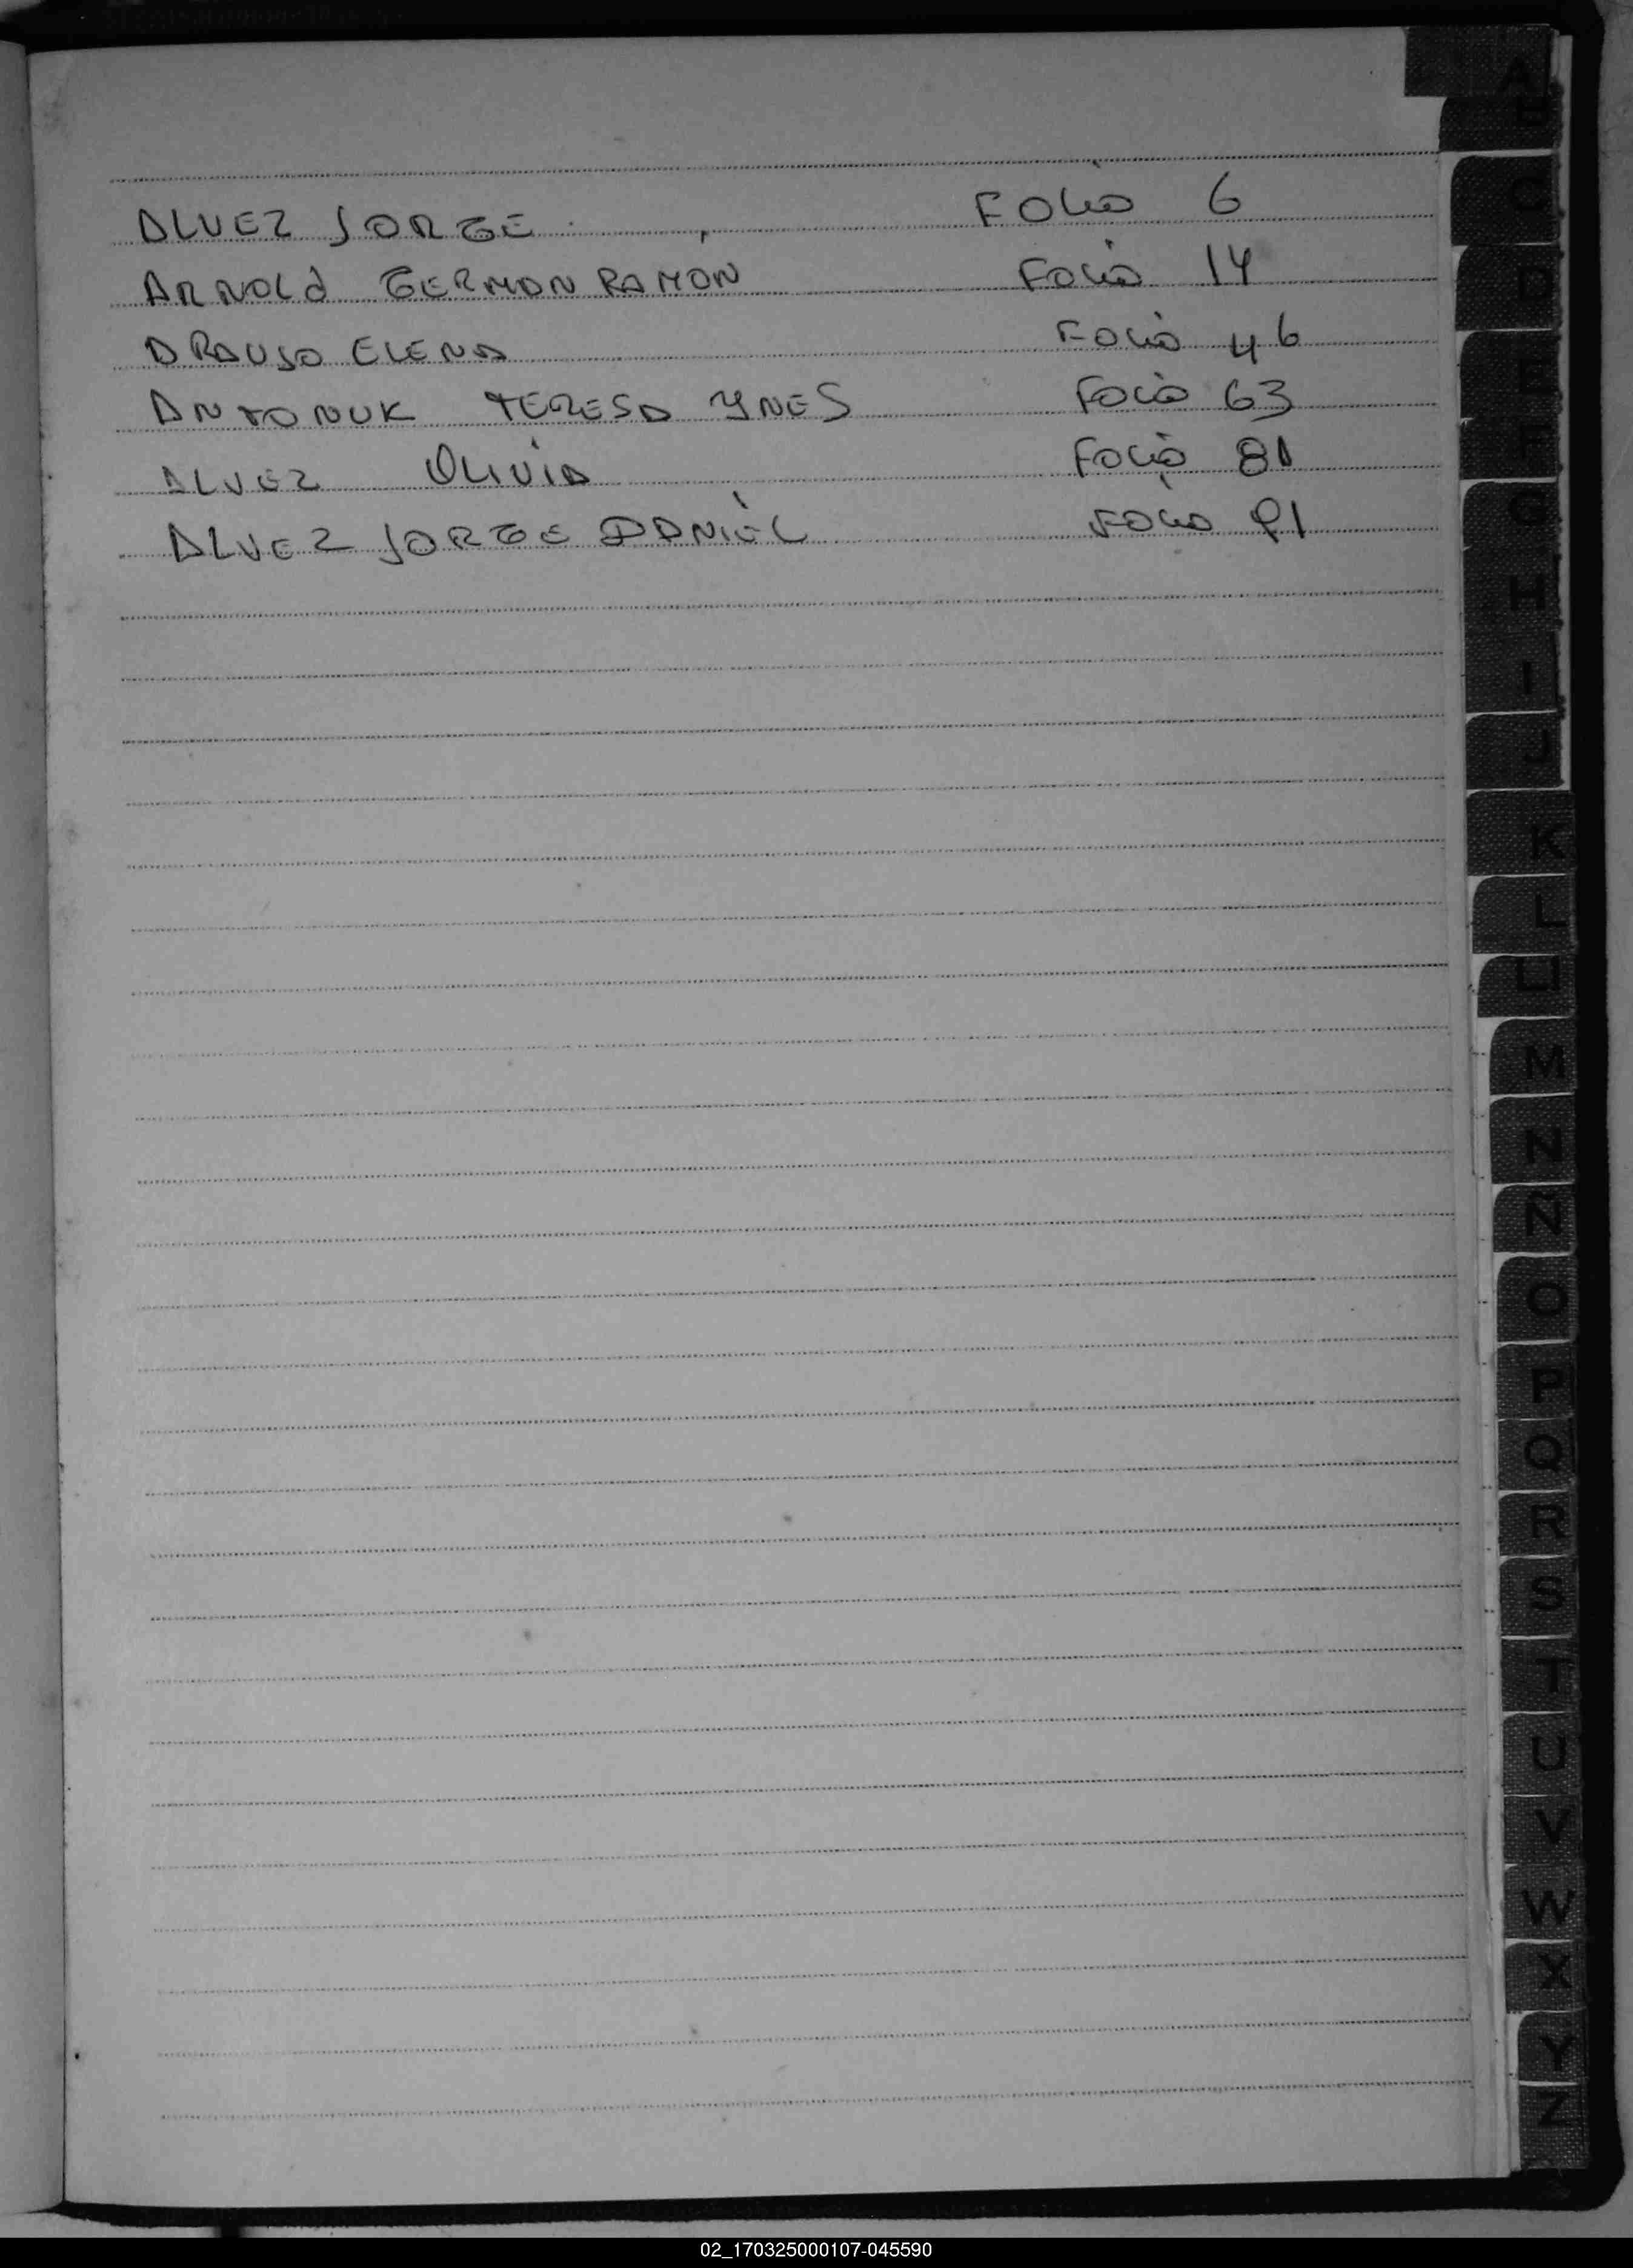 ALVEZ JORGE FOLIO 6
ARNOLD GERMAN RAMON FOLIO 14
ARAUJO ELENA FOLIO 46
ANTONUK TERESA YNES FOLIO 63
ALVEZ OLIVIA FOLIO 81
ALVEZ JORGE DANIEL FOLIO 91
A
B
C
D
E
F
G
H
I
J
K
L
LL
M
N
Ñ
O
P
Q
R
S
T
U
V
W
X
Y
Z
02_170325000107-045590